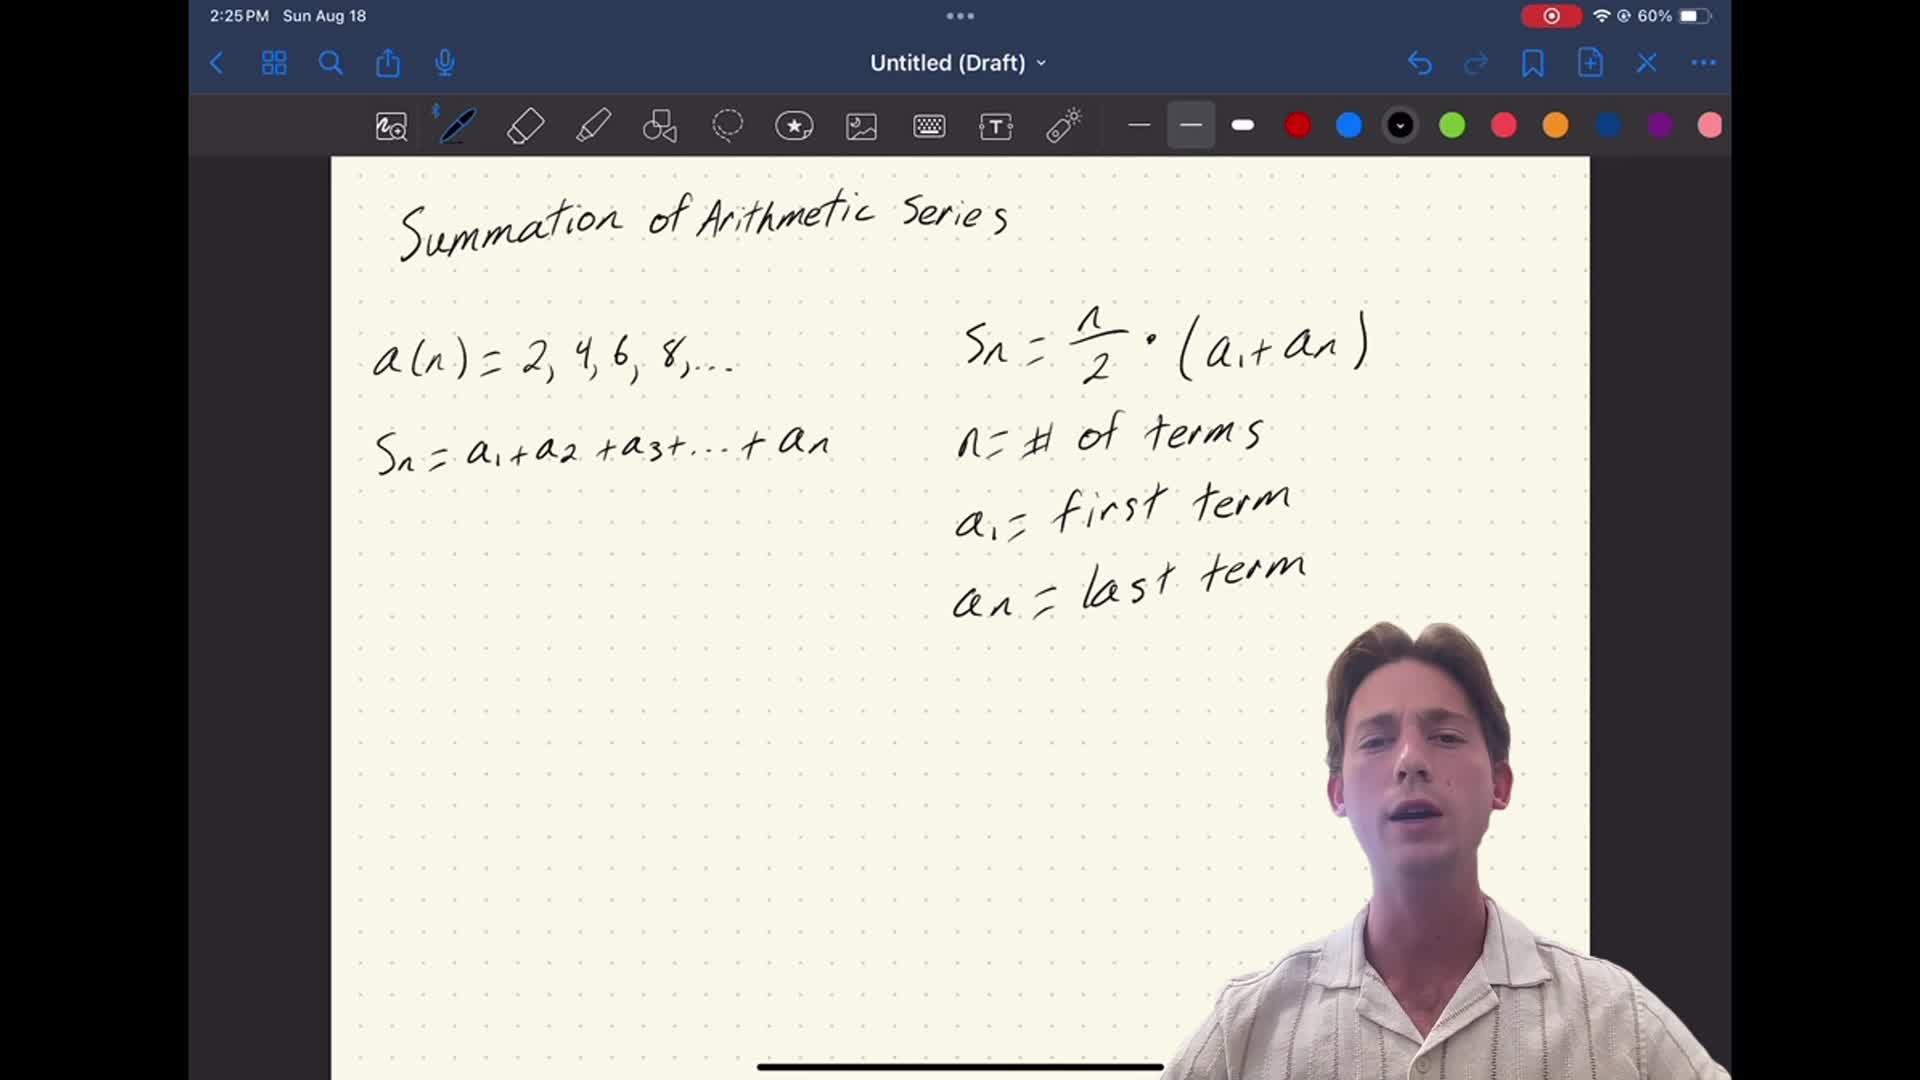 2:25 PM Sun Aug 18
60%
Untitled (Draft)
T
Summation of Arithmetic Series
a(n) = 2, 4, 6, 8, ...
Sn = a1 + a2 + a3 + ... + an
Sn = n/2 • (a1 + an)
n = # of terms
a1 = first term
an = last term